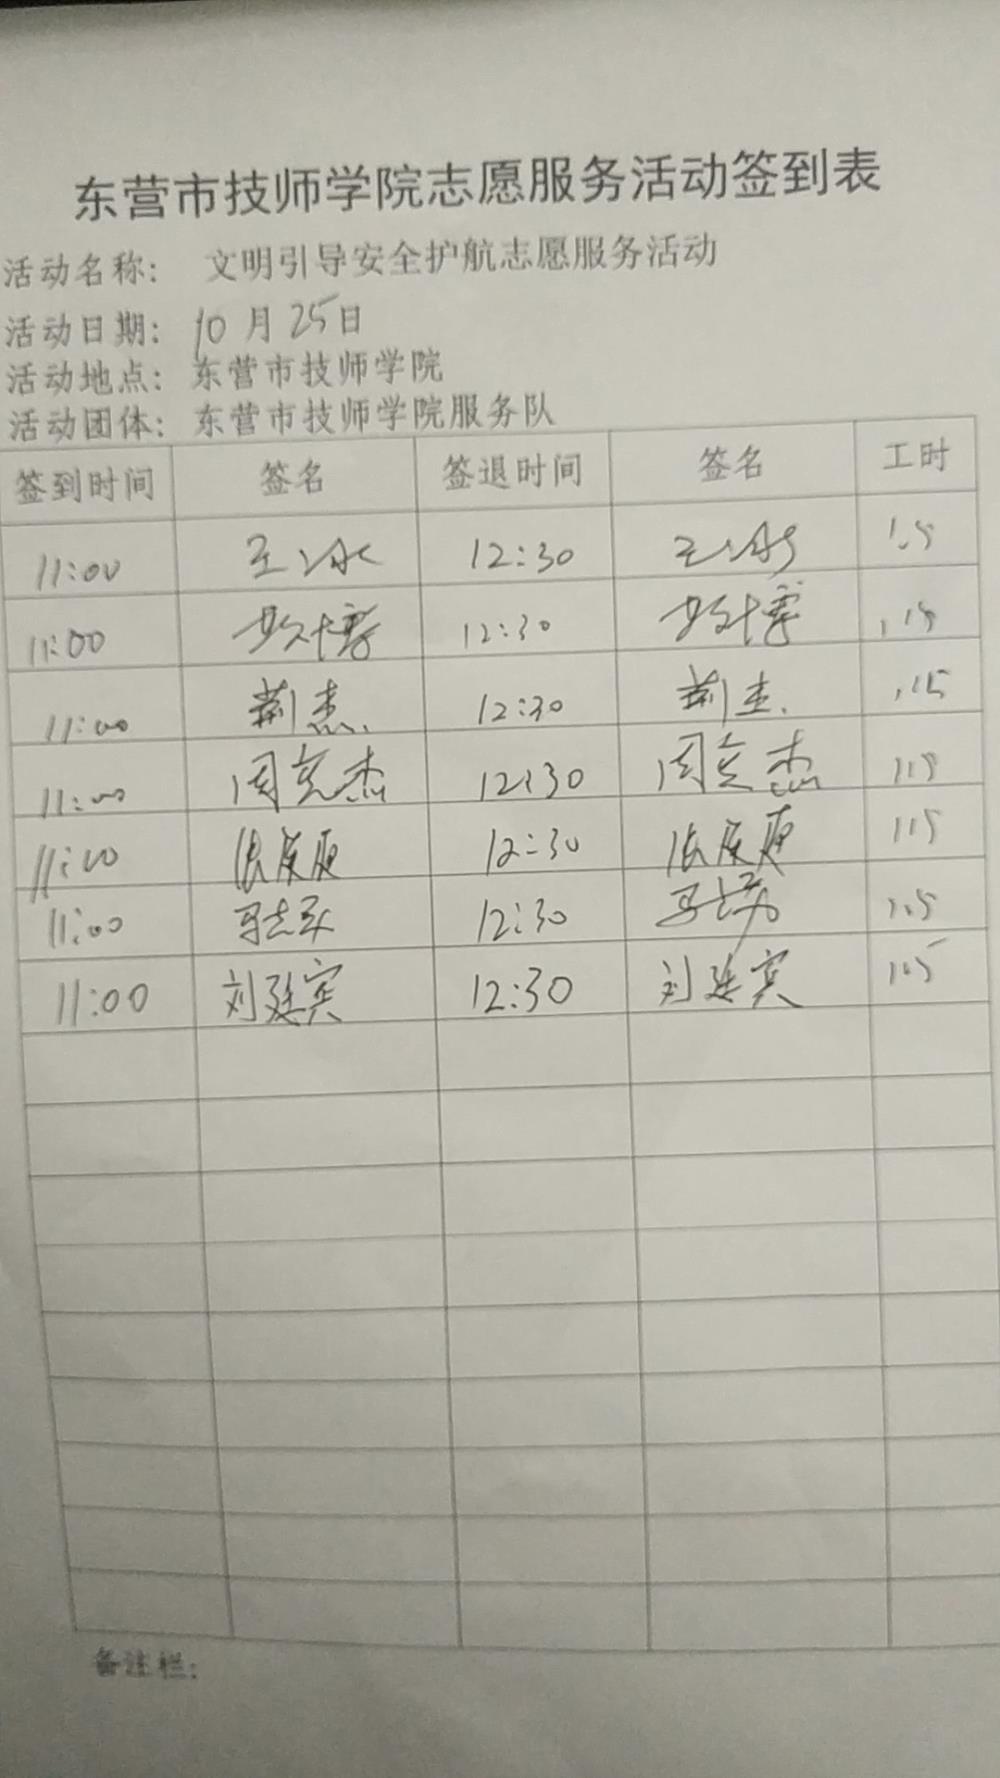 东营市技师学院志愿服务活动签到表
活动名称： 文明引导安全护航志愿服务活动
活动日期： 10月25日
活动地点： 东营市技师学院
活动团体： 东营市技师学院服务队
签到时间 签名 签退时间 签名 工时
11:00 王冰 12:30 王冰 1.5
11:00 12:30 1.5
11:00 荆杰 12:30 荆杰 1.5
11:00 周克杰 12:30 周克杰 1.5
11:00 12:30 1.5
11:00 12:30 1.5
11:00 刘廷宾 12:30 刘廷宾 1.5
备注栏：